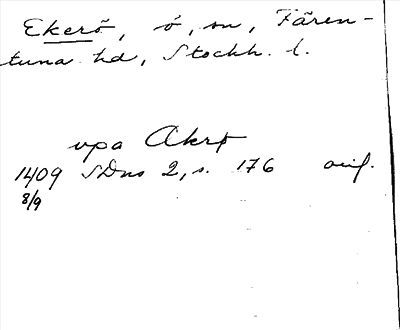 Ekerö, ö, sn, Fären-
tuna hd, Stockh. l.
vpa Akrø
1409 SDns 2, s. 176 avif.
8/9